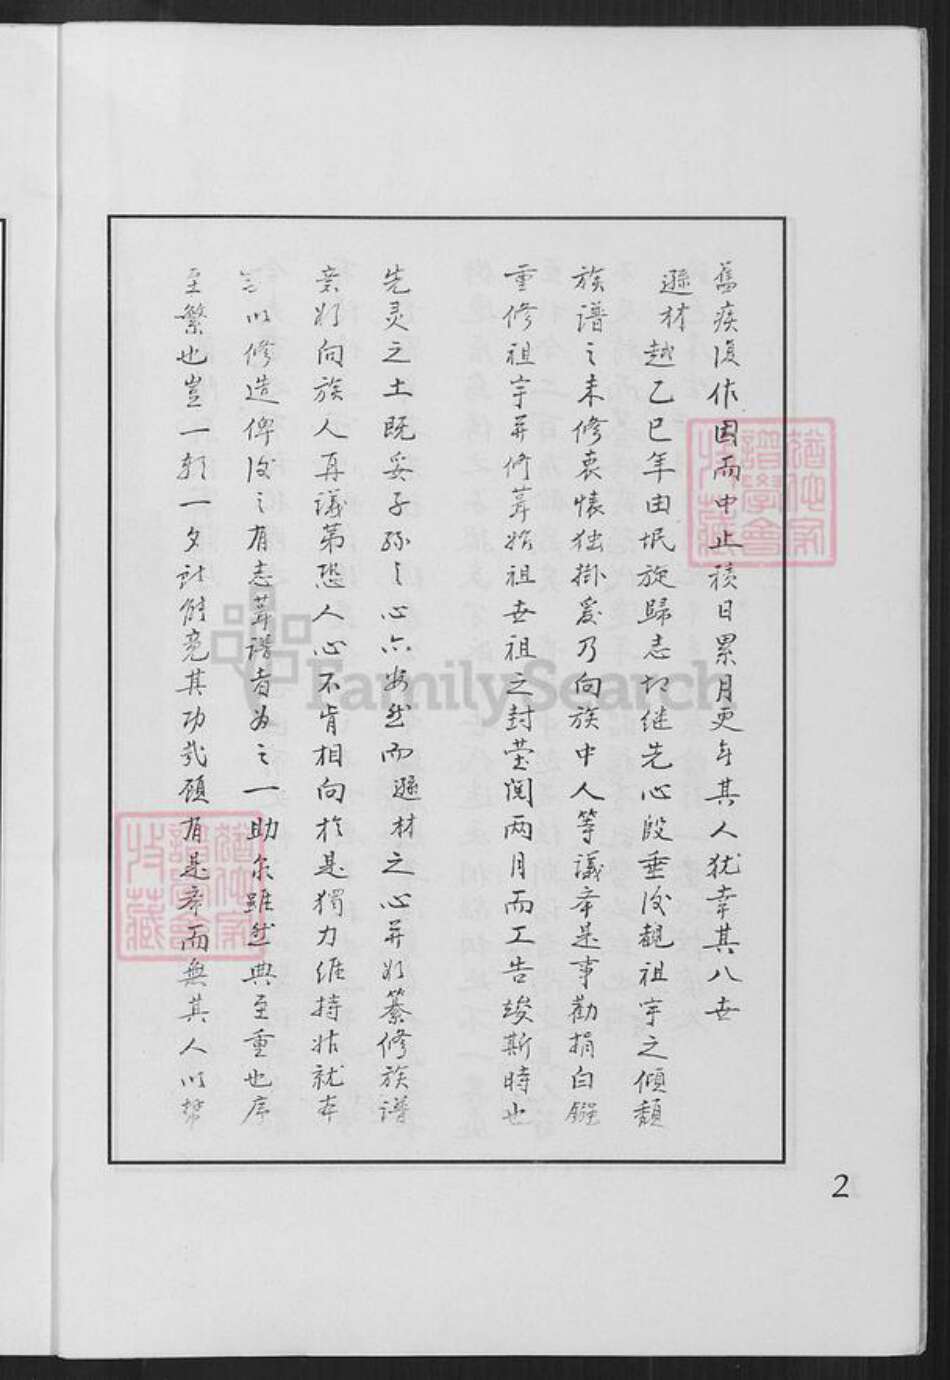 舊疾復作因而中止積日累月更年其人犹幸其八世
遜材越乙巳年由垊旋歸志切继先心殷垂後覩祖宇之傾頹
族譜之未修衷懐独掛爰乃向族中人等議举是事勸捐白鏹
重修祖宇并修葺始祖世祖之封塋閲两月而工告竣斯時也
先灵之土既妥子孫之心亦安然而遜材之心并欲纂修族譜
爰欲向族人再議第恐人心不肯相向於是獨力維持姑就本
言以修造俾後之有志葺譜者为之一助尔雖然典至重也序
至繁也豈一朝一夕計能竟其功哉頋有是举而無其人以帮
2
猶他家
譜學會
收藏
猶他家
譜學會
收藏
FamilySearch